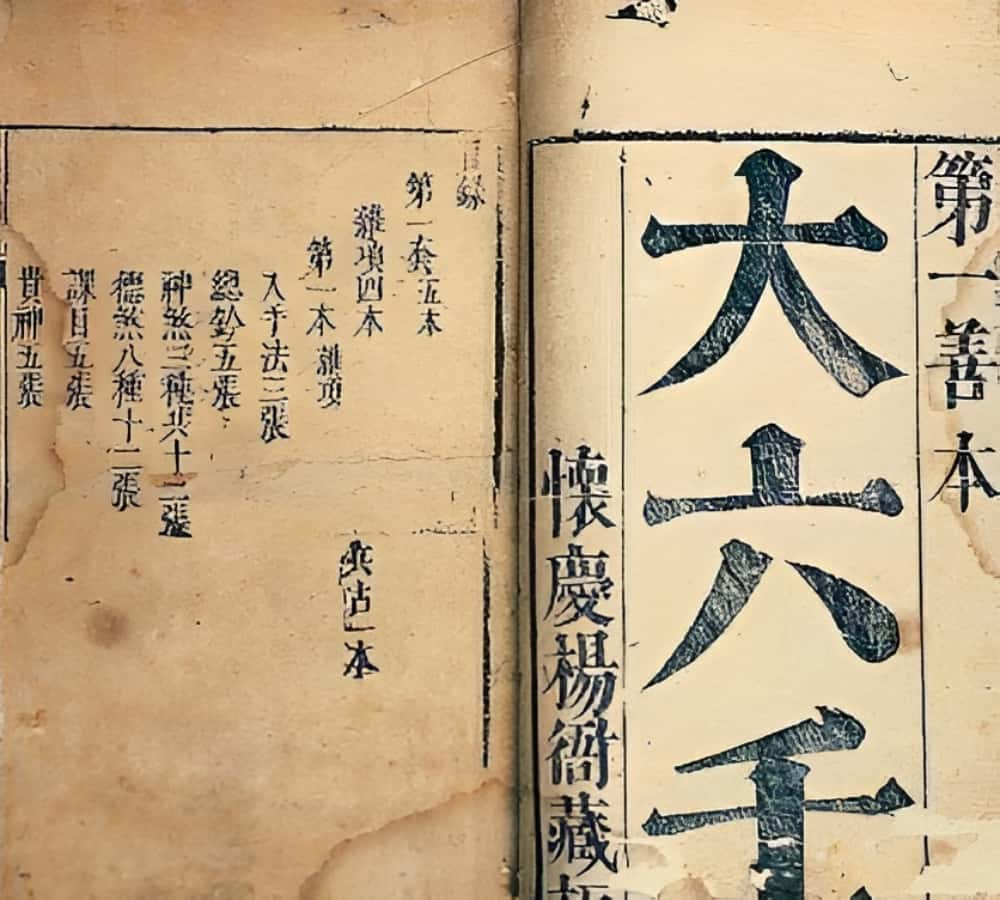 第一善本
大六壬
懷慶楊衙藏
目錄
第一套五本
雜項四本 占一本
第一本 雜項
入手法三張
總鈐五張
神煞三種共十二張
煞八種十二張
課目五張
貴神五張